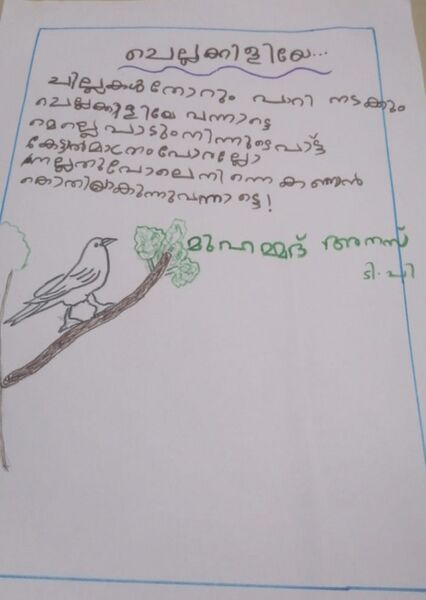 ചെല്ലക്കിളിയേ...
ചില്ലകൾതോറും പാറി നടക്കും
ചെല്ലക്കിളിയേ വന്നാട്ടെ
മെല്ലെ പാടും നിന്നുടെ പാട്ട്
കേട്ടാൽമാത്രംപോരല്ലോ
നല്ലതുപോലെ നിന്നെ കാണാൻ
കൊതിയാകുന്നുവന്നാട്ടെ!
മുഹമ്മദ് അനസ്
ടി.പി